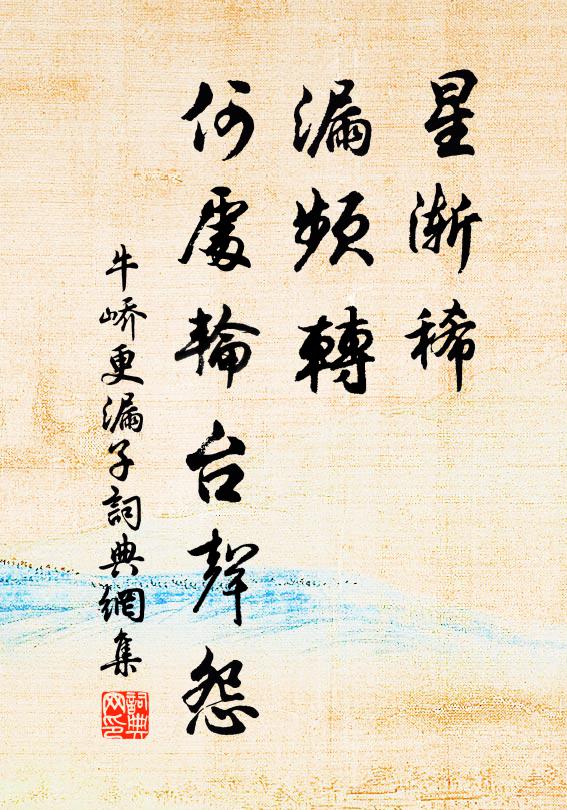 星漸稀
漏頻轉
何處輪台聲怨
牛嶠更漏子詞典網集
詞典网印